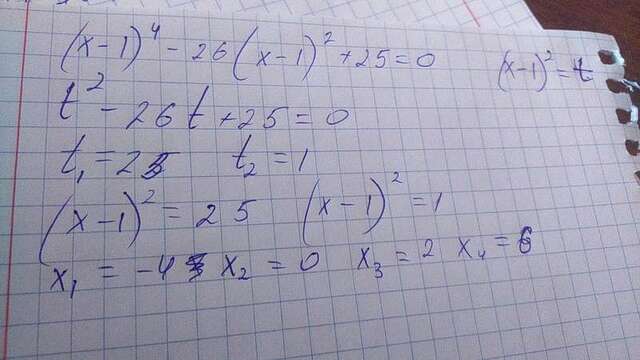 (x-1)⁴ - 26(x-1)² + 25 = 0 (x-1)² = t
t² - 26t + 25 = 0
t₁ = 25 t₂ = 1
(x-1)² = 25 (x-1)² = 1
x₁ = -4 x₂ = 0 x₃ = 2 x₄ = 6